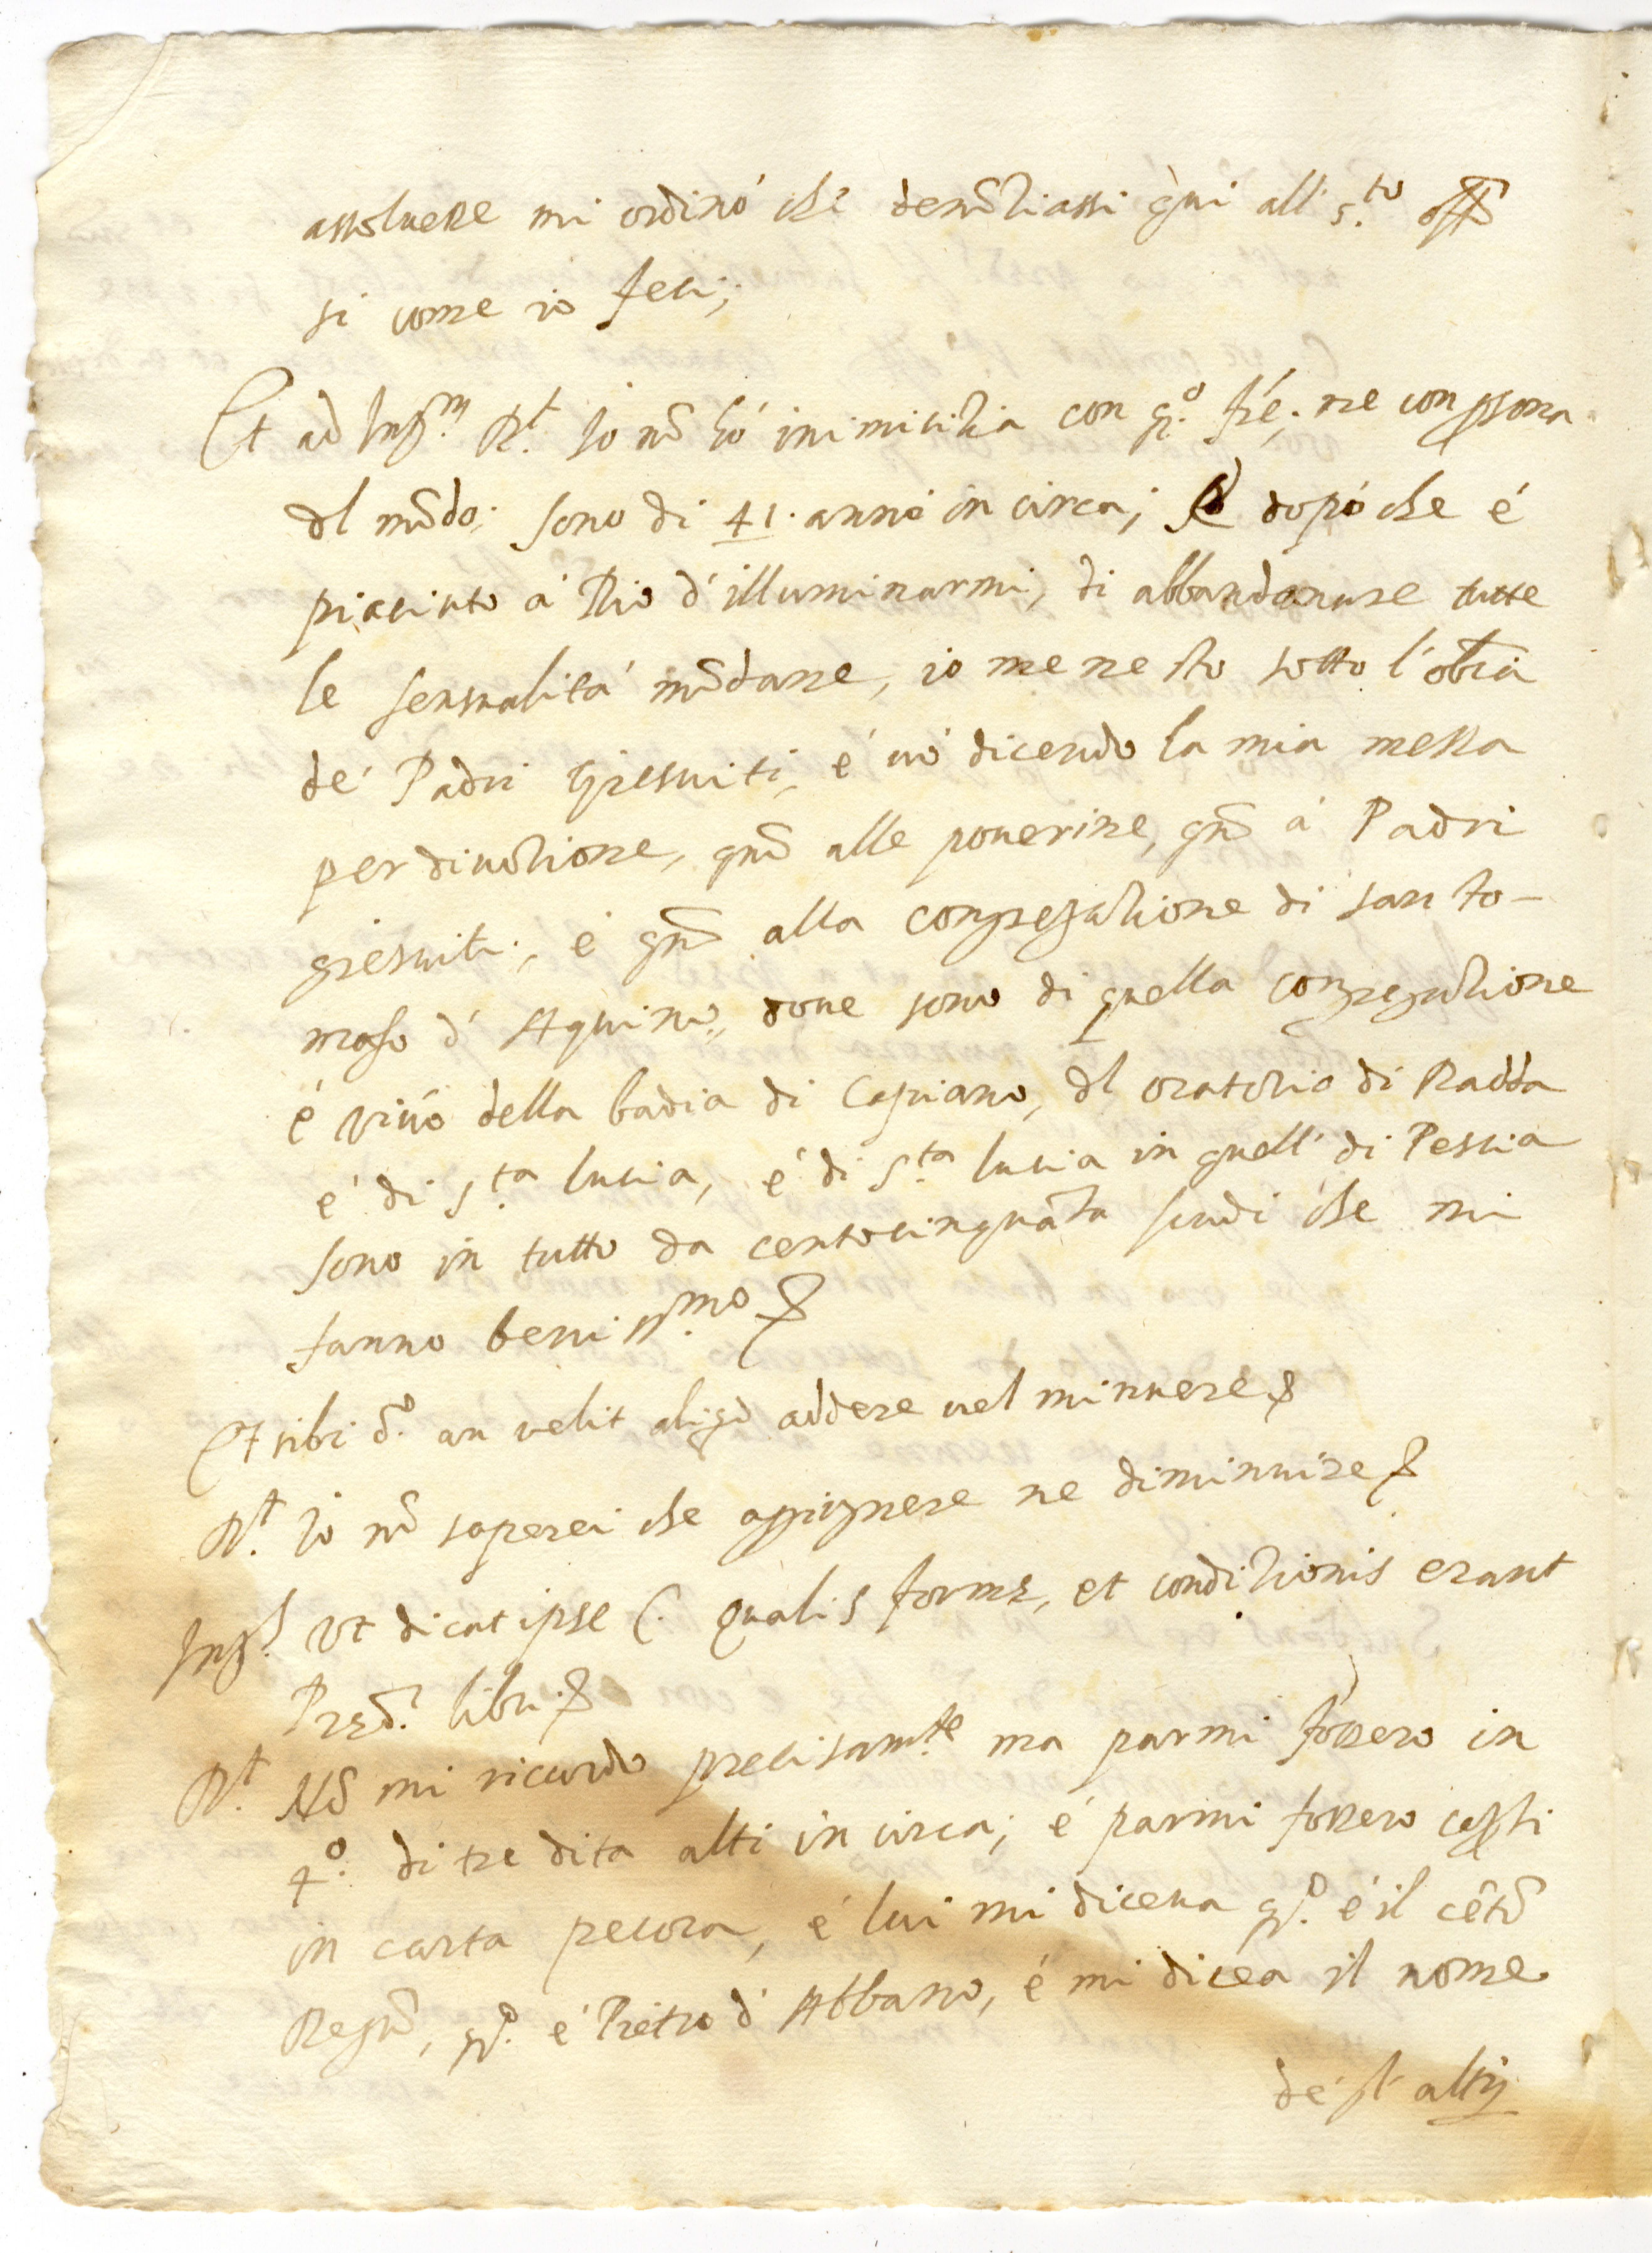 assoluere mi ordinó che denũtiassi qui all' s.to offõ
si come io feci;
Et ad Int.m R.t Io nõ hó inimicitia con q.o fr̃e; ne con psona
dl mõdo; sono di 41. anni in circa; dopó che é
piaciuto á Dio d'illuminarmi, di abbandonare tutte
le sensualitá mõdane, io me ne sto sotto l'obbĩa
dé Padri Giesuiti, é uó dicendo la mia messa
per diuotione, qñ alle pouerine, qñ á Padri
giesuiti, é qñ alla congregatione di san to-
maso d' Aquino, doue sono di quella congregatione
é viuo della badia di Capiano, dl oratorio di Radda
é di s.ta lucia, é di s.ta lucia in quell' di Pescia
sono in tutto da centocinquãta scudi che mi
fanno beniss.mo
Et sibi d.o an velit aliqd addere uel minuere
R.t Io nõ saperei che aggiugnere ne diminuire
Int.s Vt dicat ipse C. qualis formę, et conditionis erant
Pręd.i libri
R.t Nõ mi ricordo precisam.te ma parmi fossero in
4.o di tre dita alti in circa; é parmi fossero copti
in carta pecora, é lui mi diceua q.o é il cẽtũ
Regũ, q.o é Pietro d' Abbano, é mi dicea il nome
dé gl' altrj